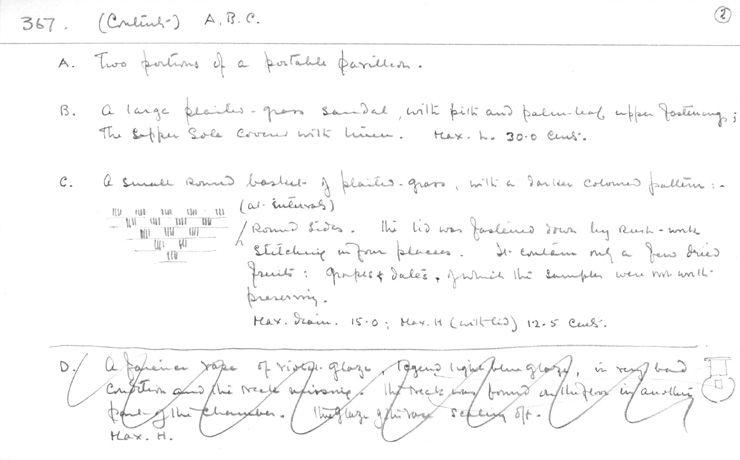 367. (Contents) A.B.C. 2
A. Two portions of a portable pavillion.
B. A large plaited-grass sandal, with pith and palm-leaf upper fastenings;
the upper sole covered with linen. Max. L. 30.0 cents.
C. A small round basket of plaited-grass, with a darker coloured pattern:-
(at intervals)
Round sides. The lid was fastened down by rush-work
stitching in four places. It contain only a few dried
fruits: grapes & dates, of which the samples were not worth
preserving.
Max. diam. 15.0; Max. H (with lid) 12.5 cents.
D. A faience vase of violet glaze, legend light blue glaze, in very bad
condition and the neck missing. The neck was found on the floor in another
part of the Chamber. The glaze of the vase scaling off.
Max. H.